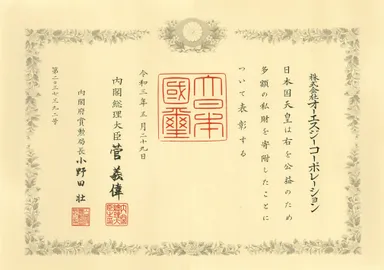 株式会社オーエスジーコーポレーション
日本国天皇は右を公益のため
多額の私財を寄附したことに
ついて表彰する
大日本
國璽
令和三年三月二十九日
内閣総理大臣 菅義偉
内閣府賞勲局長 小野田 壮